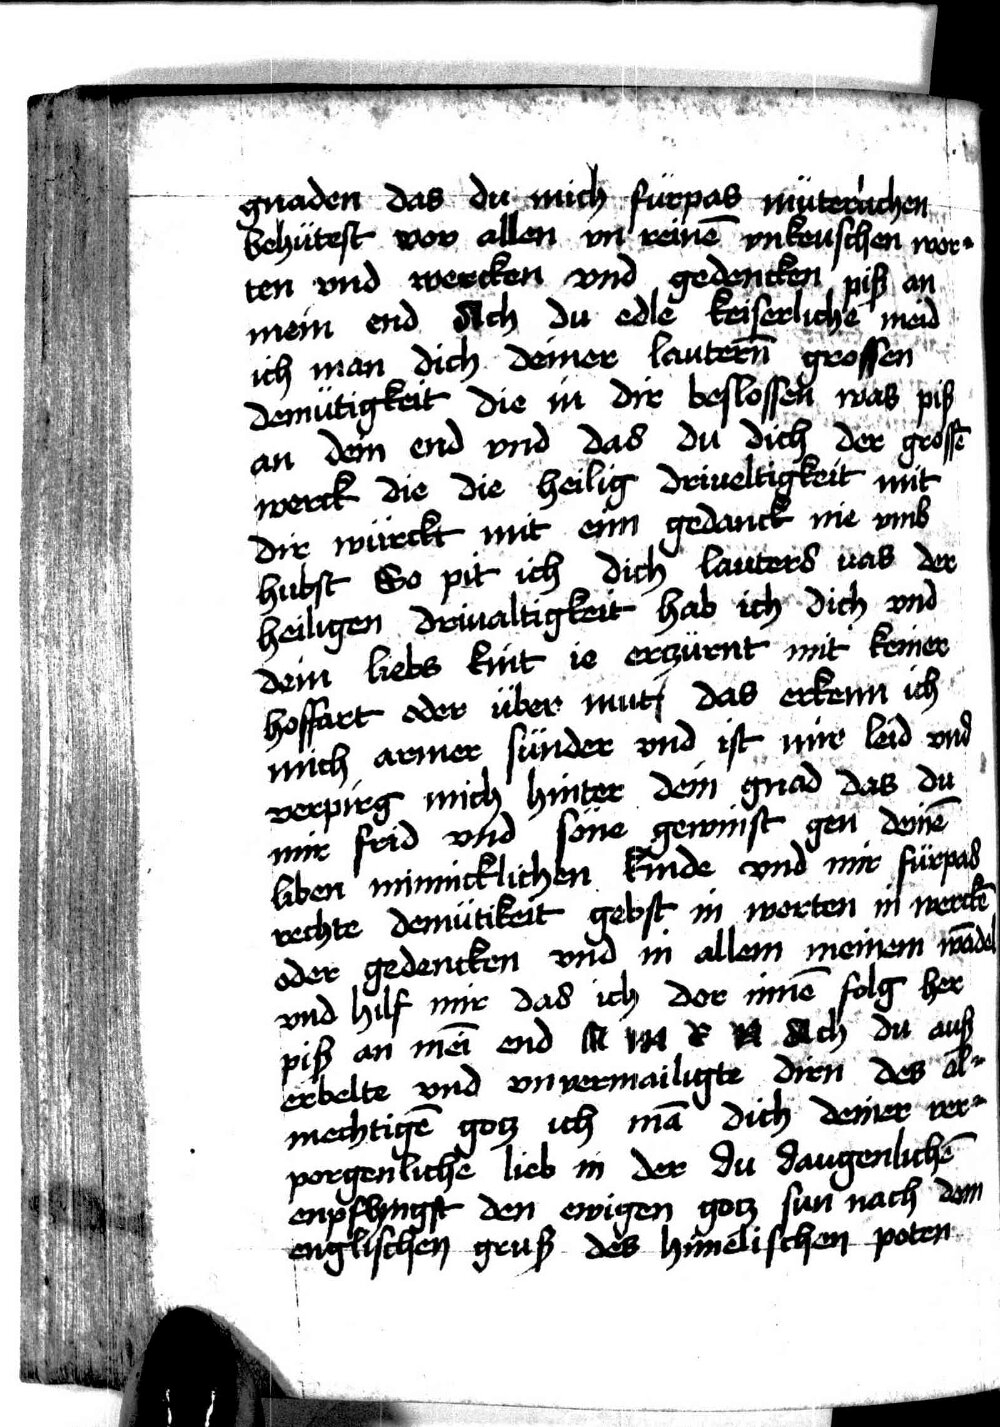 gnaden das du mich fürpas müterlichen
behütest vor allen vn reinē vnkeuschen wor-
ten vnd wercken vnd gedencken piß an
mein end Ach du edle keiserliche meid
ich man dich deiner lautern̄ grossen
demütigkeit die in dir beslossen was piß
an dein end vnd das du dich der grossē
werck die die heilig driueltigkeit mit
dir würckt mit eim gedanck nie vmb
hubst So pit ich dich lauters uas der
heiligen driualtigkeit hab ich dich vnd
dein liebs kint ie erczürnt mit keiner
hoffart oder über mut das erkenn ich
mich armer sünder vnd ist mir leid vnd
verpirg mich hinter dein gnad das du
mir frid vnd süne gewinst gen deinē
liben minnicklichen kinde vnd mir fürpas
rechte demütikeit gebst in worten in werckē
oder gedencken vnd in allem meinem wādel
vnd hilf mir das ich dor innē folg her
piß an mei͞ end A M E N Ach du auß
erbelte vnd vnvermailigte dirn des al-
mechtigē gotz ich mā dich deiner ver-
porgenlichē lieb in der du daugenlichē
enpfhingst den ewigen gotz sun nach dem
englischen gruß des himelischen poten